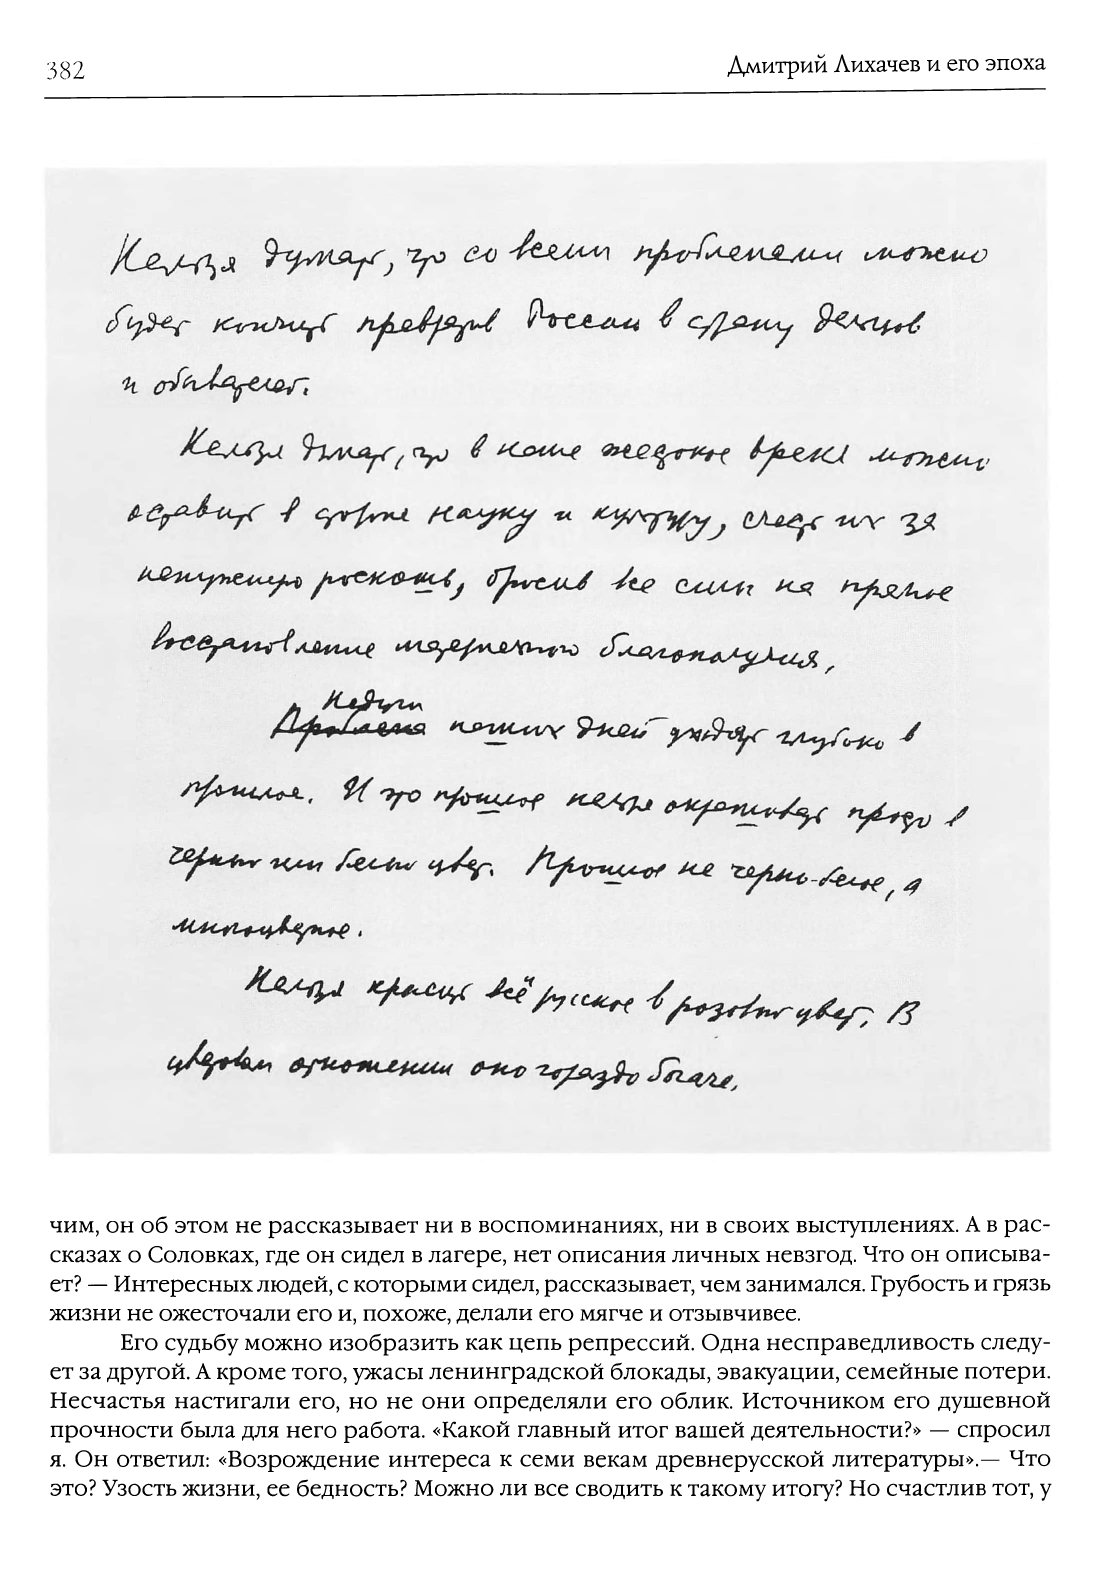 382
Дмитрий Лихачев и его эпоха
Нельзя думать, что со всеми проблемами можно
будет кончить превратив Россию в страну дельцов
и обывателей.
Нельзя думать, что в наше жестокое время можно
оставить в стороне науку и культуру, счесть их за
ненужную роскошь, бросив все силы на прямое
восстановление материального благополучия,
Недуги
Проблемы наших дней уходят глубоко в
прошлое. И это прошлое нельзя окрашивать просто в
черный или белый цвет. Прошлое не черно-белое, а
многоцветное.
Нельзя красить всё русское в розовый цвет. В
цветовом отношении оно гораздо богаче.
чим, он об этом не рассказывает ни в воспоминаниях, ни в своих выступлениях. А в рас-
сказах о Соловках, где он сидел в лагере, нет описания личных невзгод. Что он описыва-
ет? — Интересных людей, с которыми сидел, рассказывает, чем занимался. Грубость и грязь
жизни не ожесточали его и, похоже, делали его мягче и отзывчивее.
Его судьбу можно изобразить как цепь репрессий. Одна несправедливость следу-
ет за другой. А кроме того, ужасы ленинградской блокады, эвакуации, семейные потери.
Несчастья настигали его, но не они определяли его облик. Источником его душевной
прочности была для него работа. «Какой главный итог вашей деятельности?» — спросил
я. Он ответил: «Возрождение интереса к семи векам древнерусской литературы».— Что
это? Узость жизни, ее бедность? Можно ли все сводить к такому итогу? Но счастлив тот, у